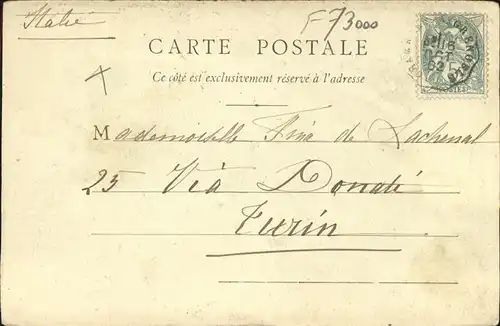 Italie
F73000
CARTE POSTALE
Ce côté est exclusivement réservé à l'adresse
Mademoiselle Fina de Lachenal
25 Via Donati
Turin